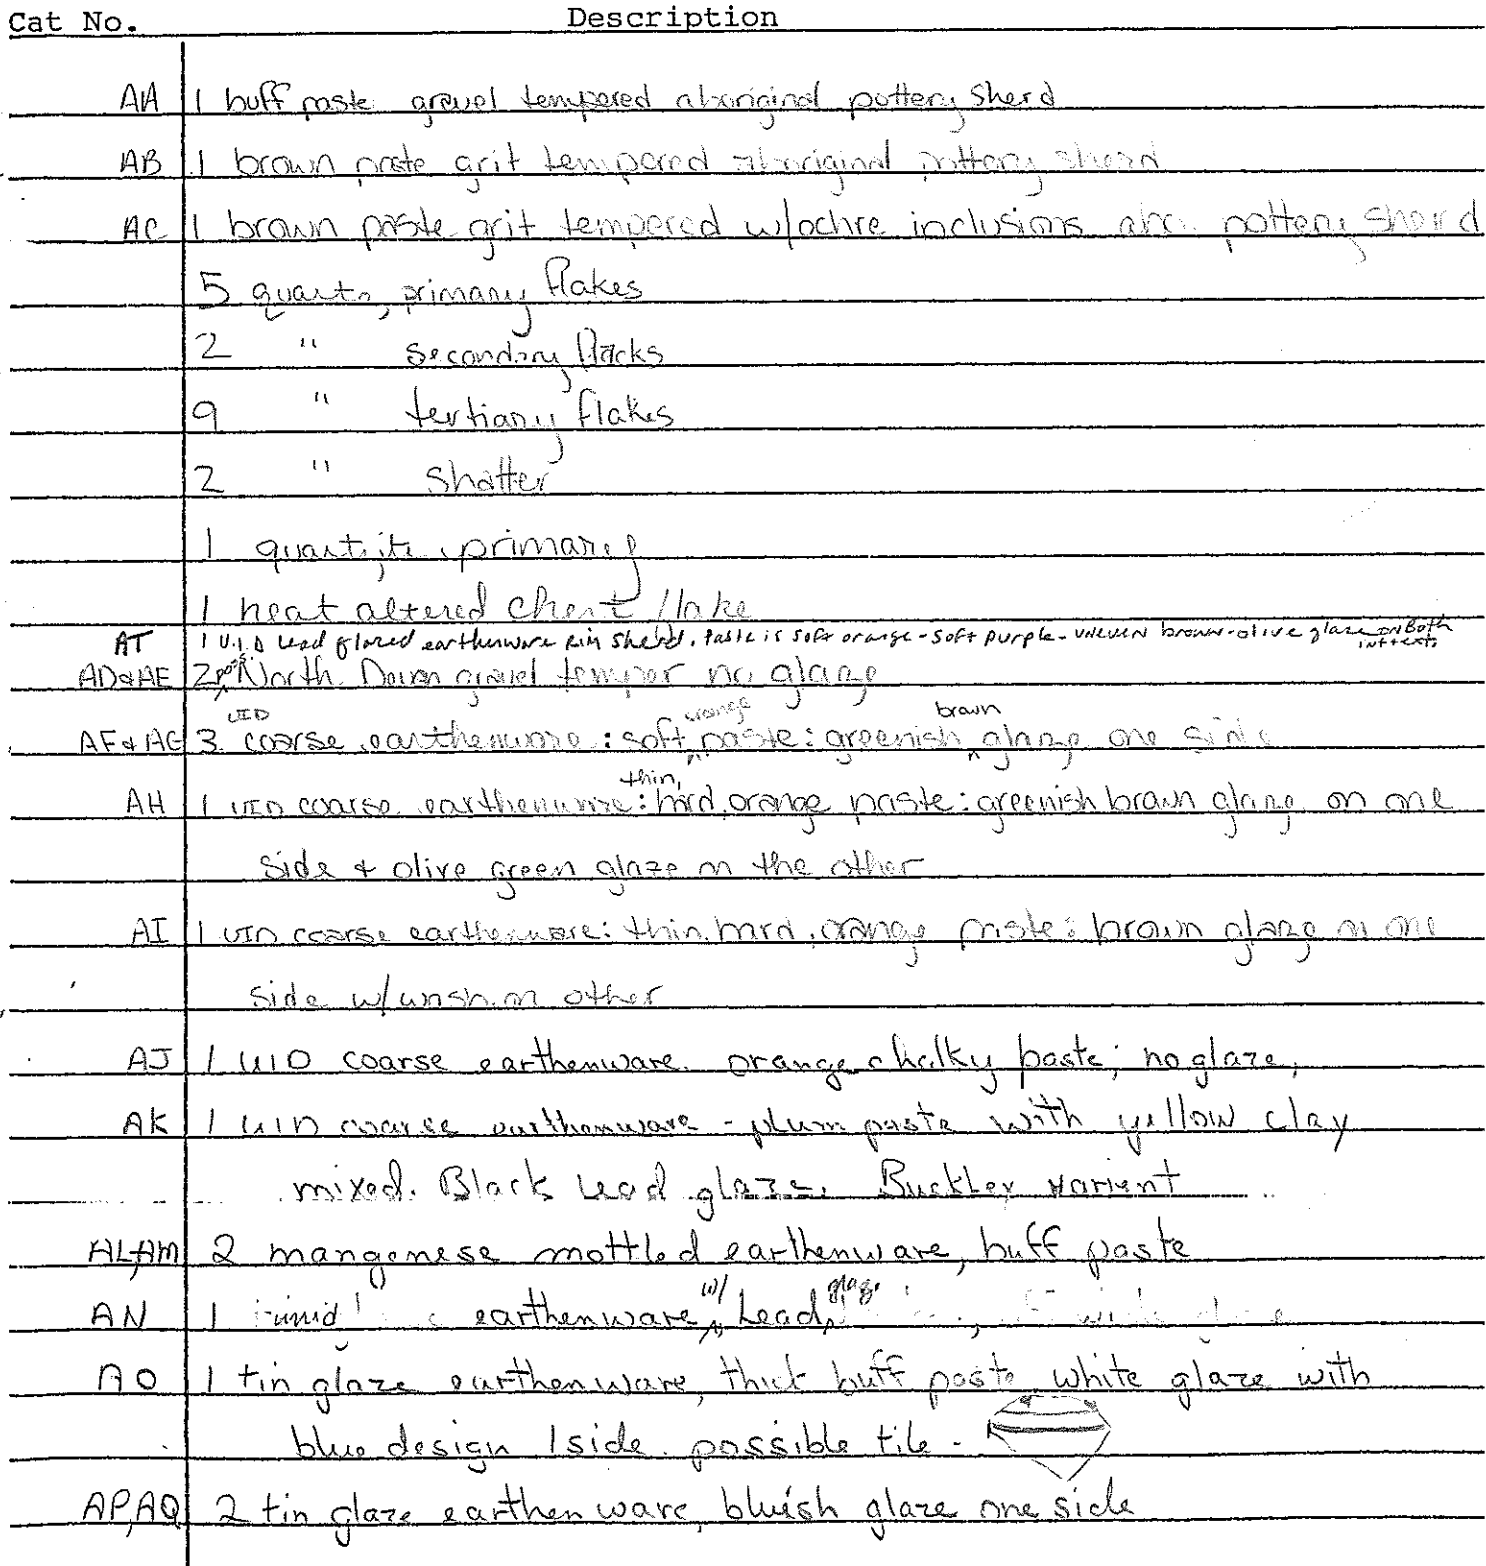 Cat No. Description
AA 1 buff paste gravel tempered aboriginal pottery sherd
AB 1 brown paste grit tempered aboriginal pottery sherd
AC 1 brown paste grit tempered w/ochre inclusions abo. pottery sherd
5 quartz primary flakes
2 " secondary flacks
9 " tertiary flakes
2 " shatter
1 quartzite primary
1 heat altered chert flake
AT 1 U.I.D Lead glazed earthenware Rim Sherd. Paste is soft orange-soft purple-uneven brown-olive glaze on Both int+ext.
AD&AE 2 poss North Devon gravel temper no glaze
AF&AG 3 UID coarse earthenware: soft orange paste: greenish brown glaze one side
AH 1 UID coarse earthenware: thin, hard, orange paste: greenish brown glaze on one
side & olive green glaze on the other
AI 1 UID coarse earthenware: thin, hard, orange paste: brown glaze on one
side w/wash on other
AJ 1 UID coarse earthenware. orange chalky paste; no glaze,
AK 1 UID coarse earthenware - plum paste with yellow clay
mixed. Black Lead glaze. Buckley varient
AL,AM 2 mangonese mottled earthenware, buff paste
AN 1 earthenware w/ Lead glaze
AO 1 tin glaze earthenware, thick buff paste white glaze with
blue design 1 side. possible tile -
AP,AQ 2 tin glaze earthenware, bluish glaze one side